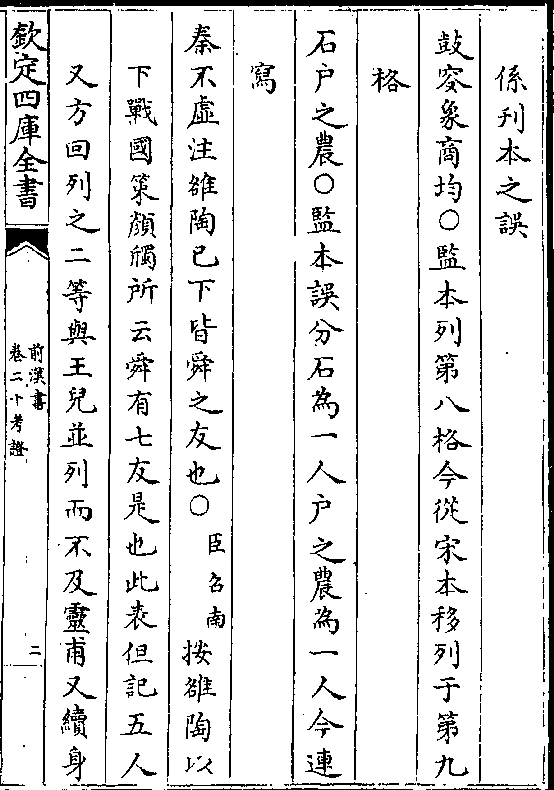 係刊本之誤
鼓窔象商均○監本列第八格今從宋本移列于第九
格
石户之農○監本誤分石為一人户之農為一人今連
寫
秦不虛注雒陶已下皆舜之友也○臣召南按雒陶以
下戰國策顔斶所云舜有七友是也此表但記五人
又方回列之二等與王兒並列而不及靈甫又續身
欽定四庫全書
前漢書
卷二十考證
二